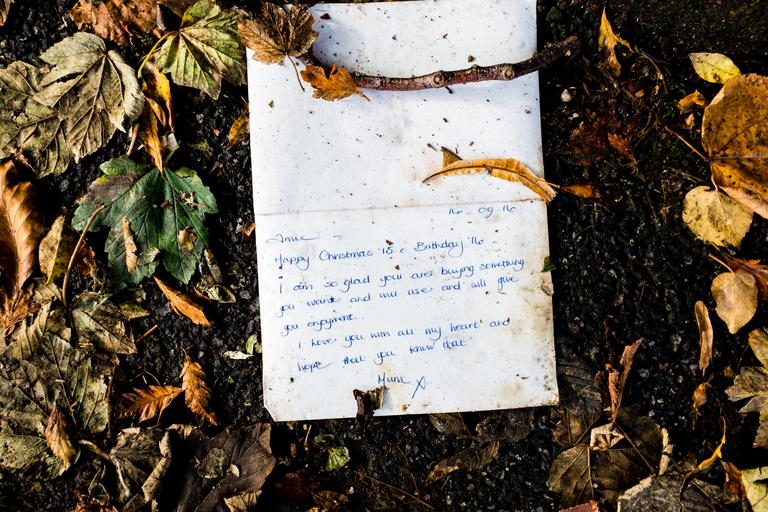 16.09.16
Anne
Happy Christmas '15 & Birthday '16 -
I am so glad you are buying something
you want and will use and will give
you enjoyment.
I love you with all my heart and
hope that you know that
Mum X